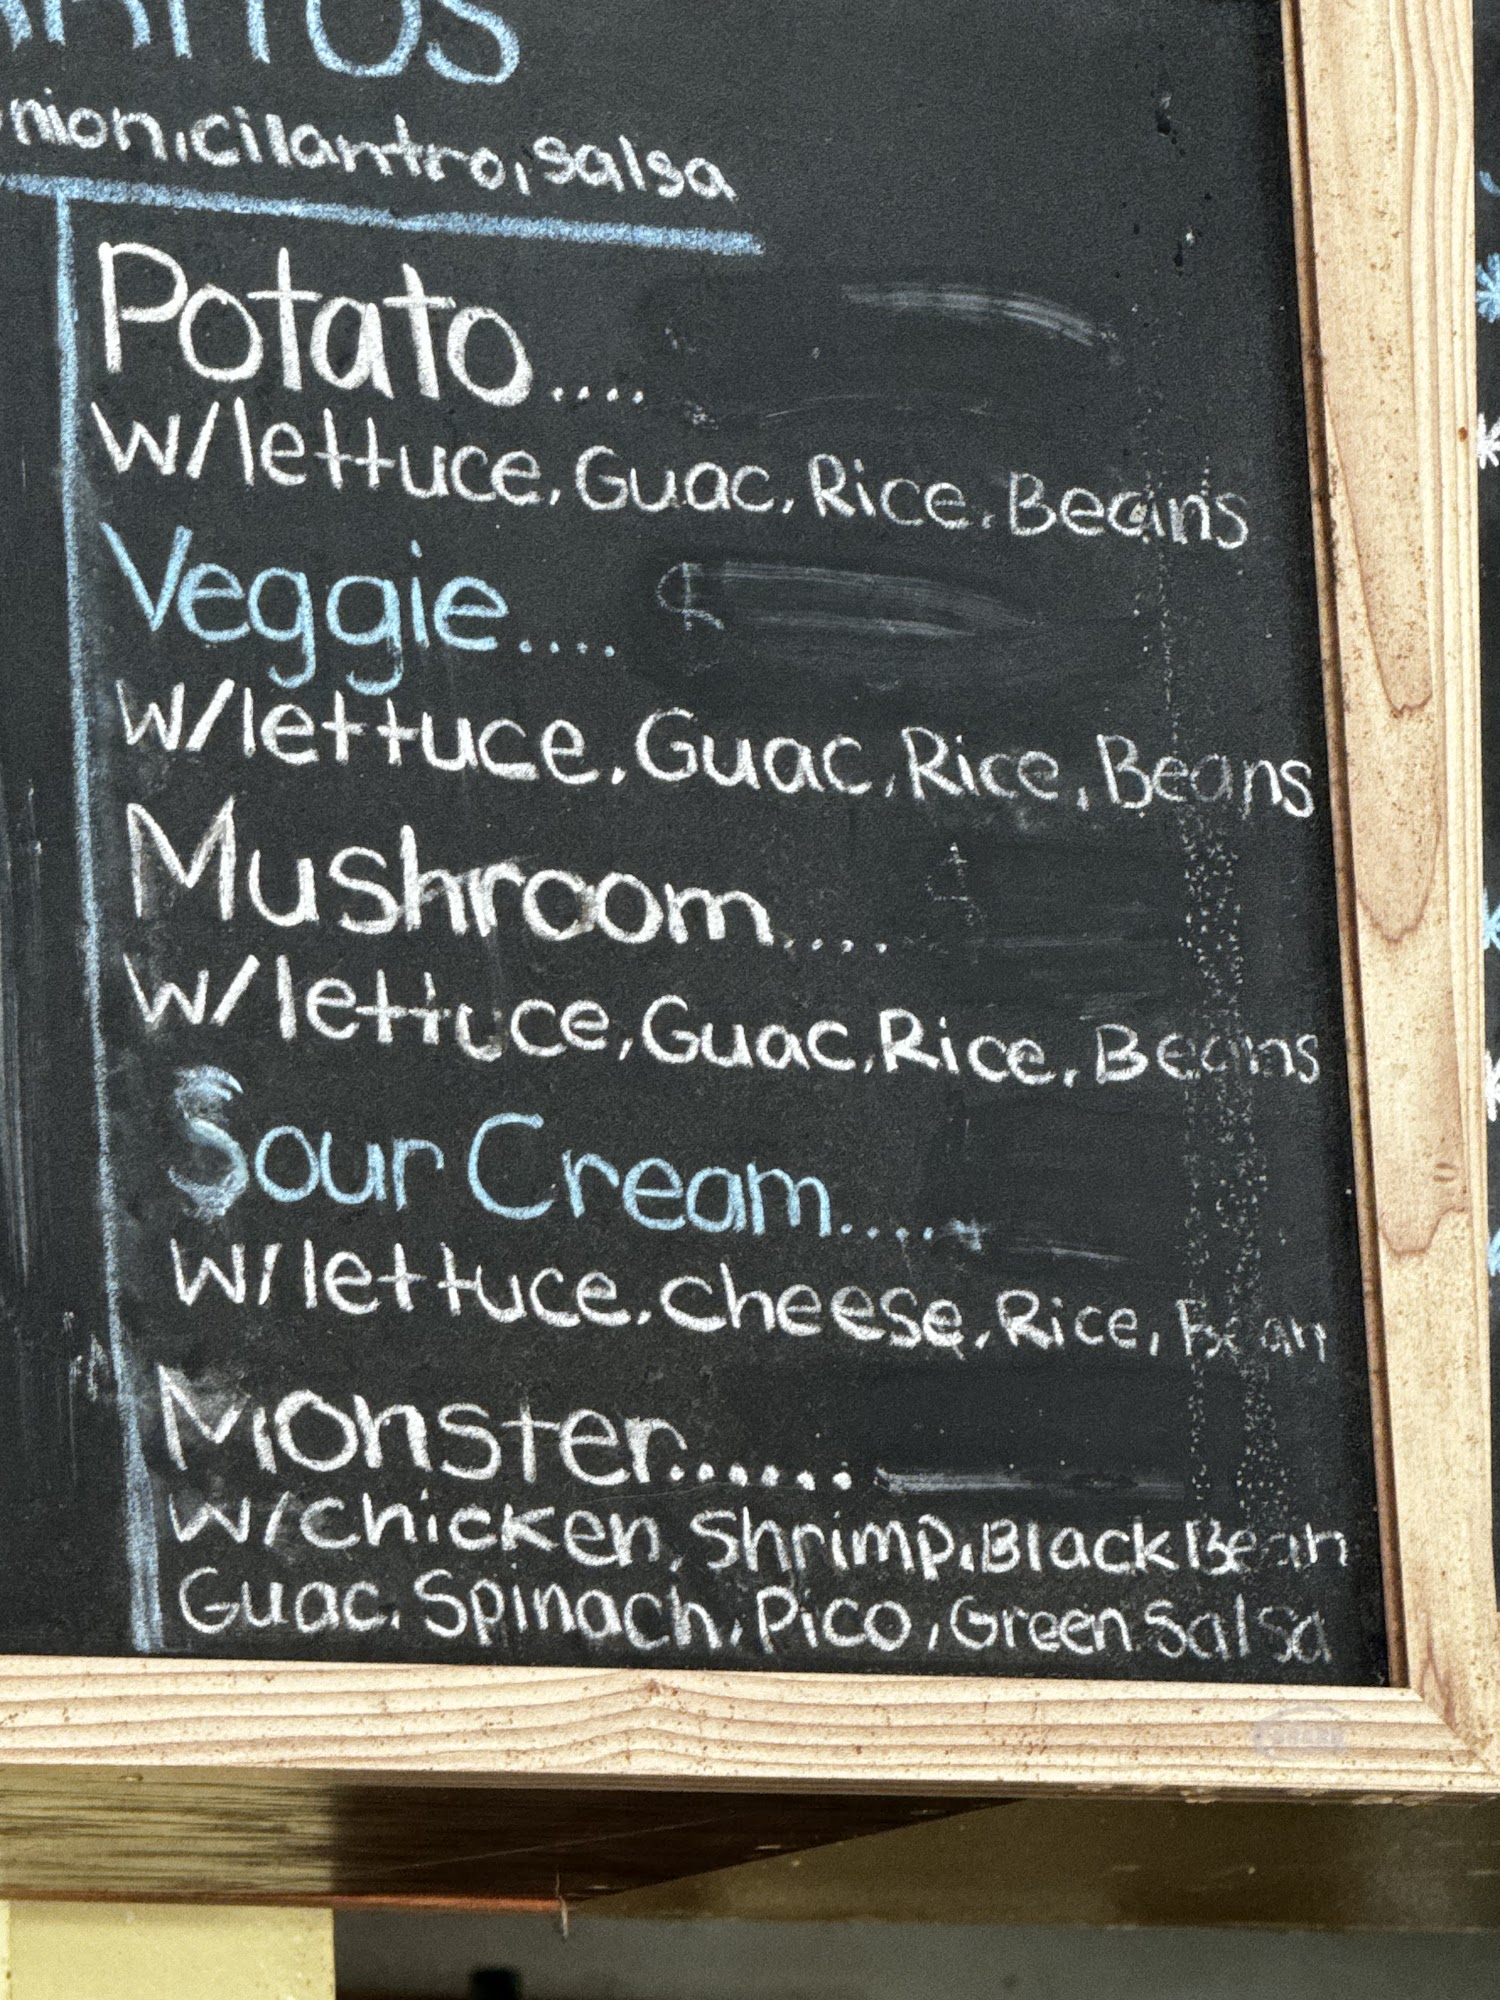 nion, cilantro, salsa
Potato....
w/lettuce, Guac, Rice, Beans
Veggie....
w/lettuce, Guac, Rice, Beans
Mushroom....
w/lettuce, Guac, Rice, Beans
Sour Cream.....
w/lettuce, cheese, Rice, Bean
Monster......
w/chicken, Shrimp, Black Bean
Guac, Spinach, Pico, Green Salsa